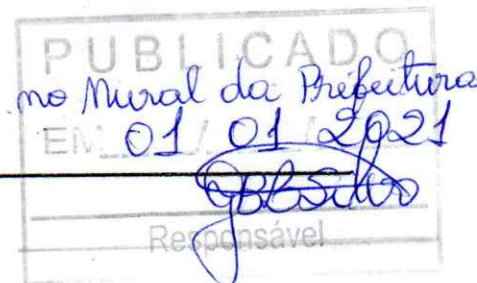 PUBLICADO
no Mural da Prefeitura
EM 01 / 01 / 2021
Responsável